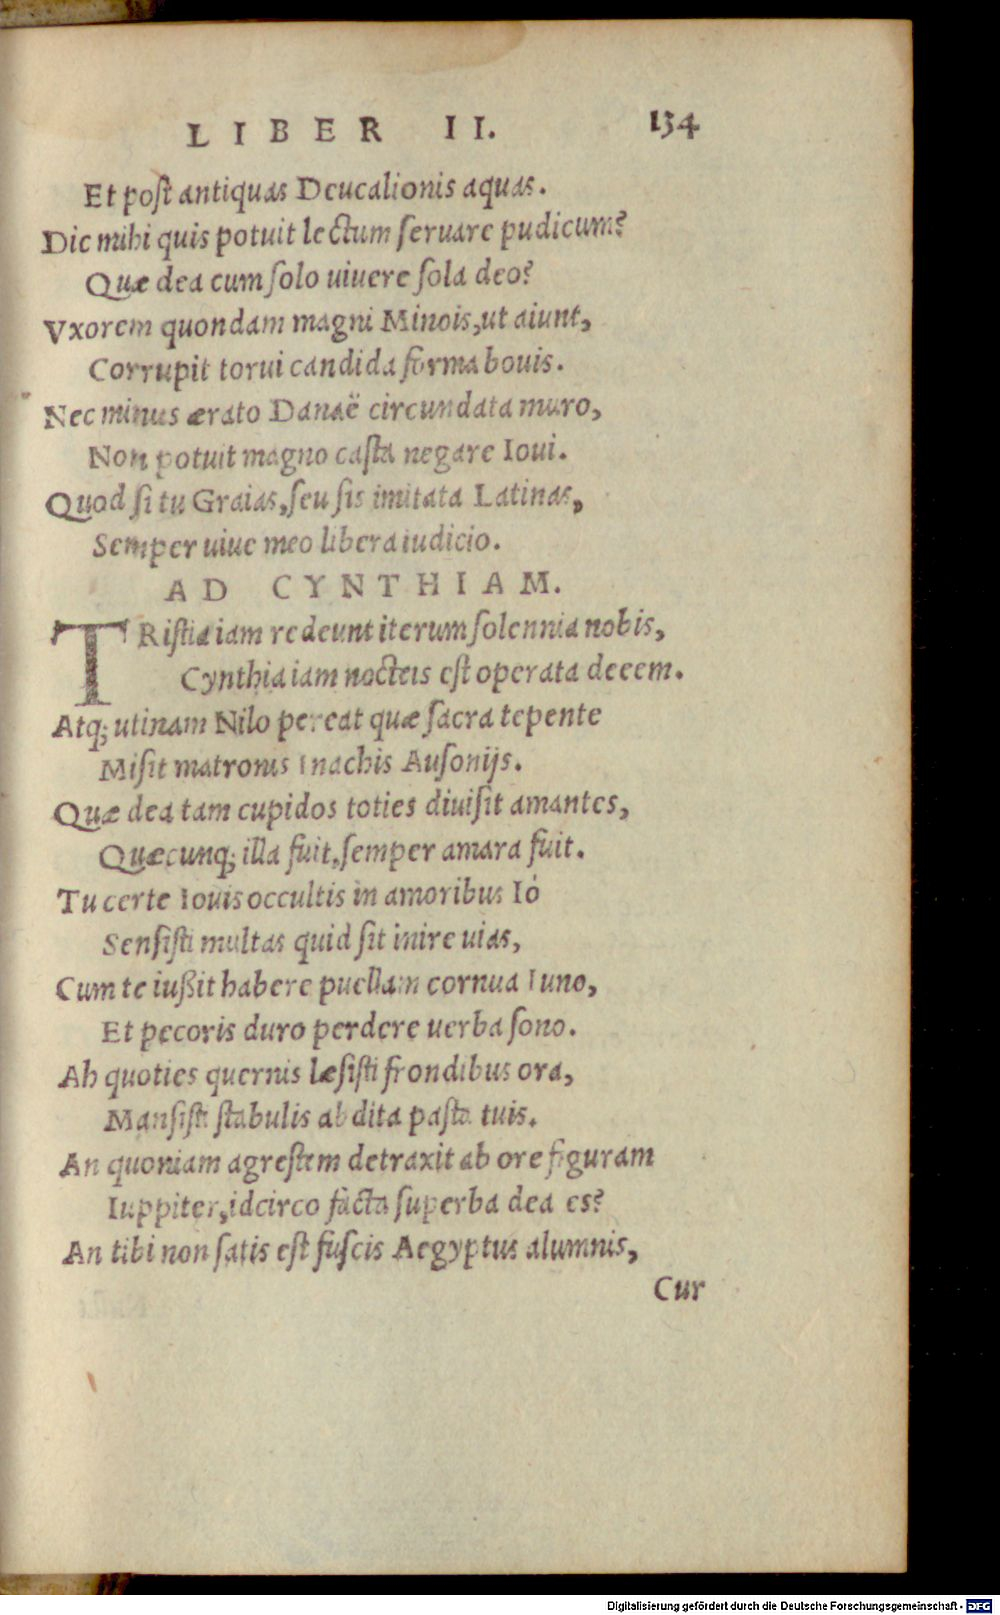 LIBER II. 134
Et post antiquas Deucalionis aquas.
Dic mihi quis potuit lectum seruare pudicum?
Quæ dea cum solo uiuere sola deo?
Vxorem quondam magni Minois, ut aiunt,
Corrupit torui candida forma bouis.
Nec minus ærato Danaë circundata muro,
Non potuit magno casta negare Ioui.
Quod si tu Graias, seu sis imitata Latinas,
Semper uiue meo libera iudicio.
AD CYNTHIAM.
TRistia iam redeunt iterum solennia nobis,
Cynthia iam nocteis est operata deeem.
Atq; utinam Nilo pereat quæ sacra tepente
Misit matronis Inachis Ausonijs.
Quæ dea tam cupidos toties diuisit amantes,
Quæcunq; illa fuit, semper amara fuit.
Tu certe Iouis occultis in amoribus Ió
Sensisti multas quid sit inire uias,
Cum te iußit habere puellam cornua Iuno,
Et pecoris duro perdere uerba sono.
Ah quoties quernis læsisti frondibus ora,
Mansisti stabulis abdita pasta tuis.
An quoniam agrestem detraxit ab ore figuram
Iuppiter, idcirco facta superba dea es?
An tibi non satis est fuscis Aegyptus alumnis,
Cur
Digitalisierung gefördert durch die Deutsche Forschungsgemeinschaft - DFG